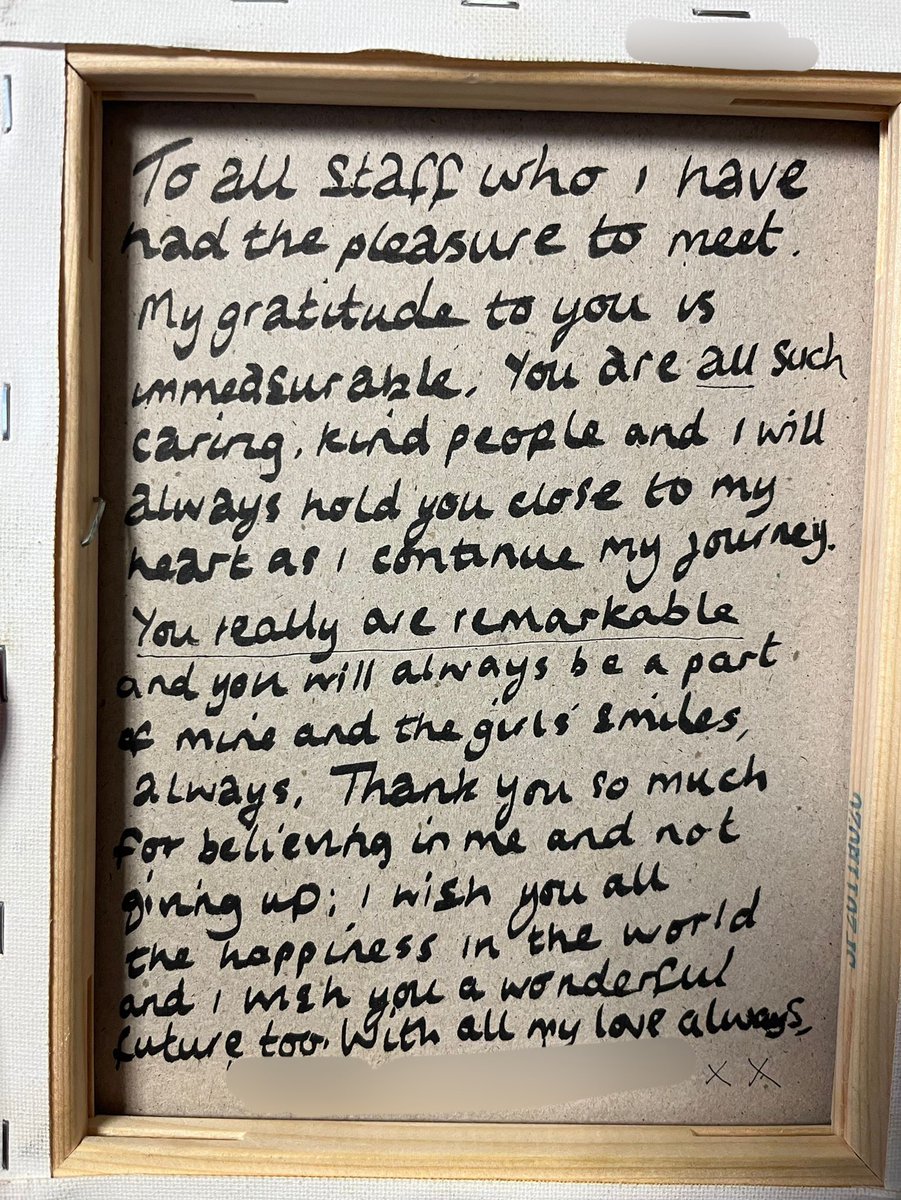 To all staff who I have
had the pleasure to meet.
My gratitude to you is
immeasurable. You are all such
caring, kind people and I will
always hold you close to my
heart as I continue my journey.
You really are remarkable
and you will always be a part
of mine and the girls' smiles,
always. Thank you so much
for believing in me and not
giving up; I wish you all
the happiness in the world
and I wish you a wonderful
future too. With all my love always,
x x